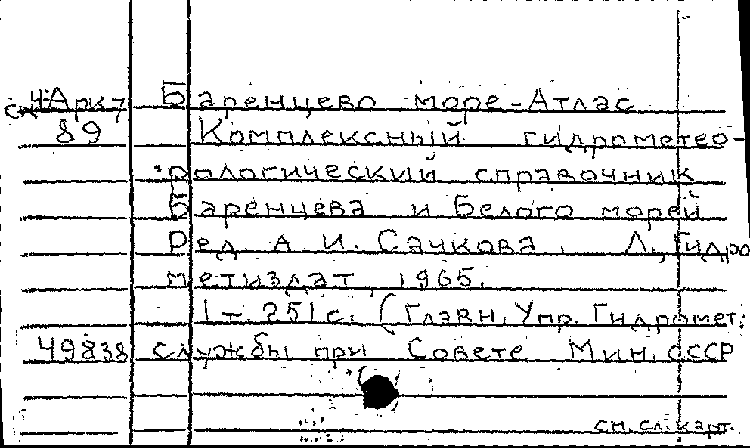 4Арк7 Баренцево море-Атлас
89 Комплексный гидрометео-
рологический справочник
Баренцева и Белого морей
Ред А. И. Сачкова. Л., Гидро
метиздат, 1965.
1 – 251 с. (Главн. Упр. Гидромет.
49838 службы при Совете Мин. СССР
см. сл. карт.